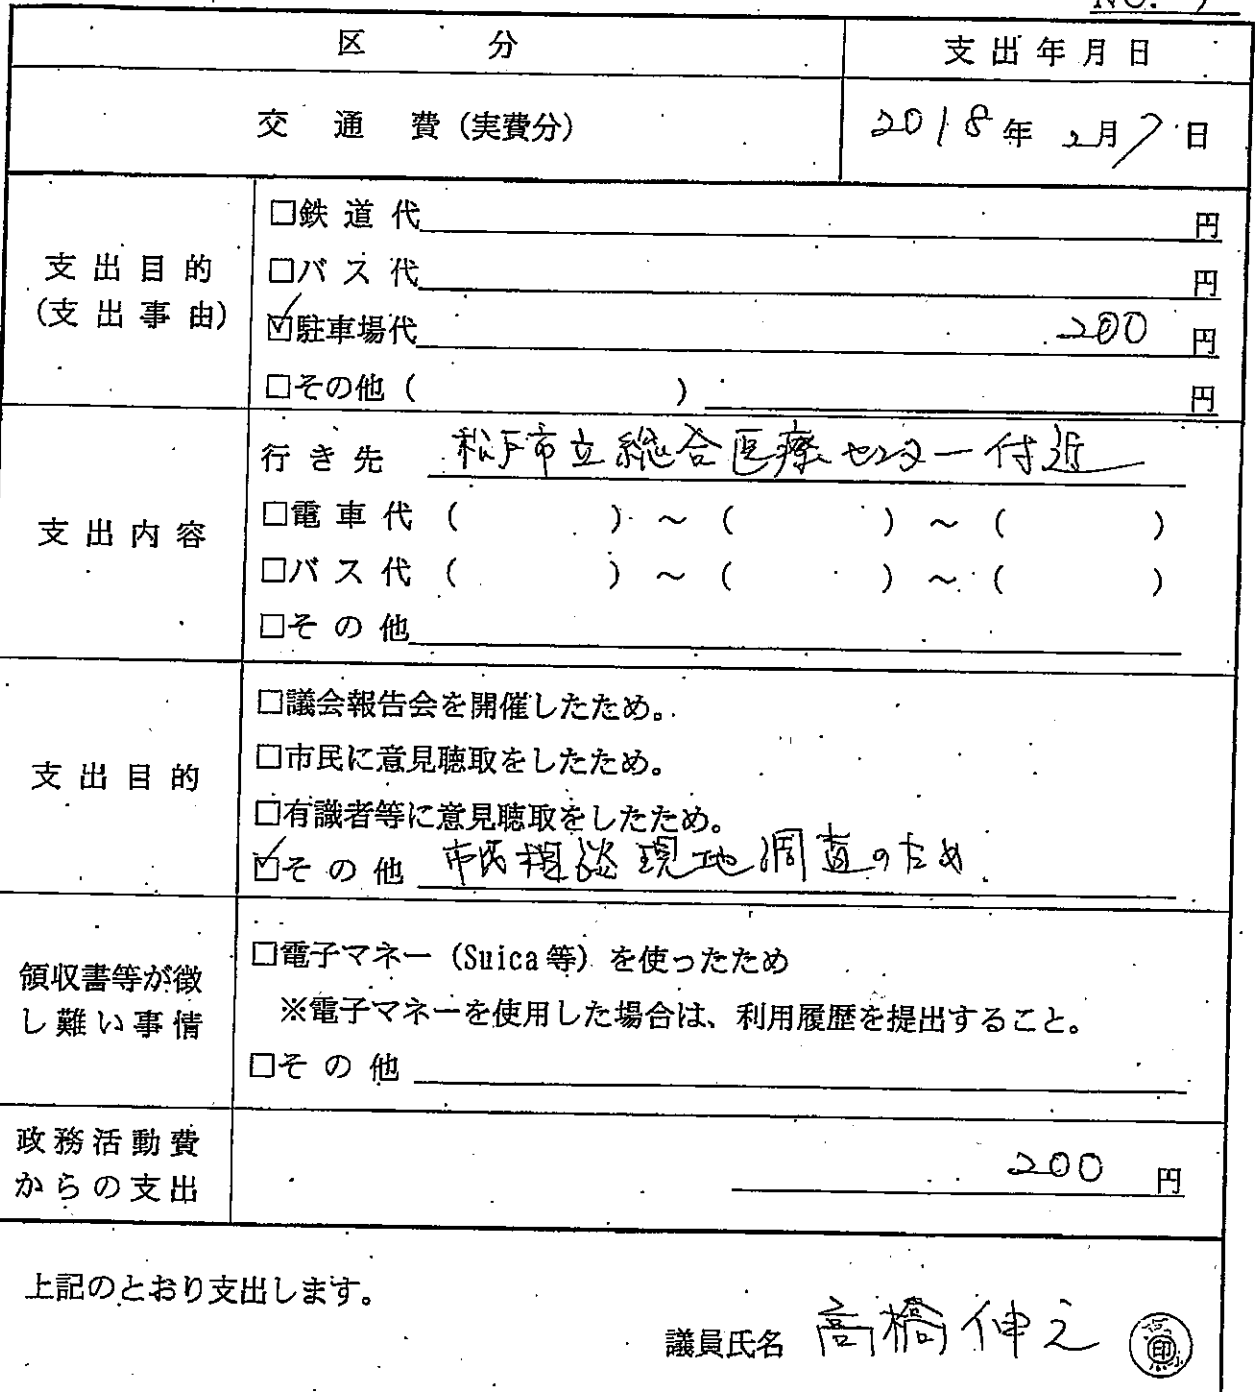 区 分 支出年月日
交 通 費（実費分） 2018年 2月7日
支出目的
（支出事由）
□鉄道代 円
□バス代 円
☑駐車場代 200 円
□その他（ ） 円
支出内容
行き先 松戸市立総合医療センター付近
□電車代（ ）～（ ）～（ ）
□バス代（ ）～（ ）～（ ）
□その他
支出目的
□議会報告会を開催したため。
□市民に意見聴取をしたため。
□有識者等に意見聴取をしたため。
☑その他 市民相談現地調査のため
領収書等が徴
し難い事情
□電子マネー（Suica等）を使ったため
※電子マネーを使用した場合は、利用履歴を提出すること。
□その他
政務活動費
からの支出
200 円
上記のとおり支出します。
議員氏名 高橋伸之 印